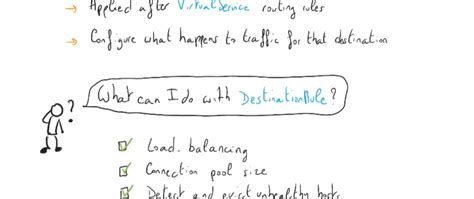 → Applied after VirtualService routing rules
→ Configure what happens to traffic for that destination
?
What can I do with DestinationRule?
Load balancing
Connection pool size
Detect and evict unhealthy hosts